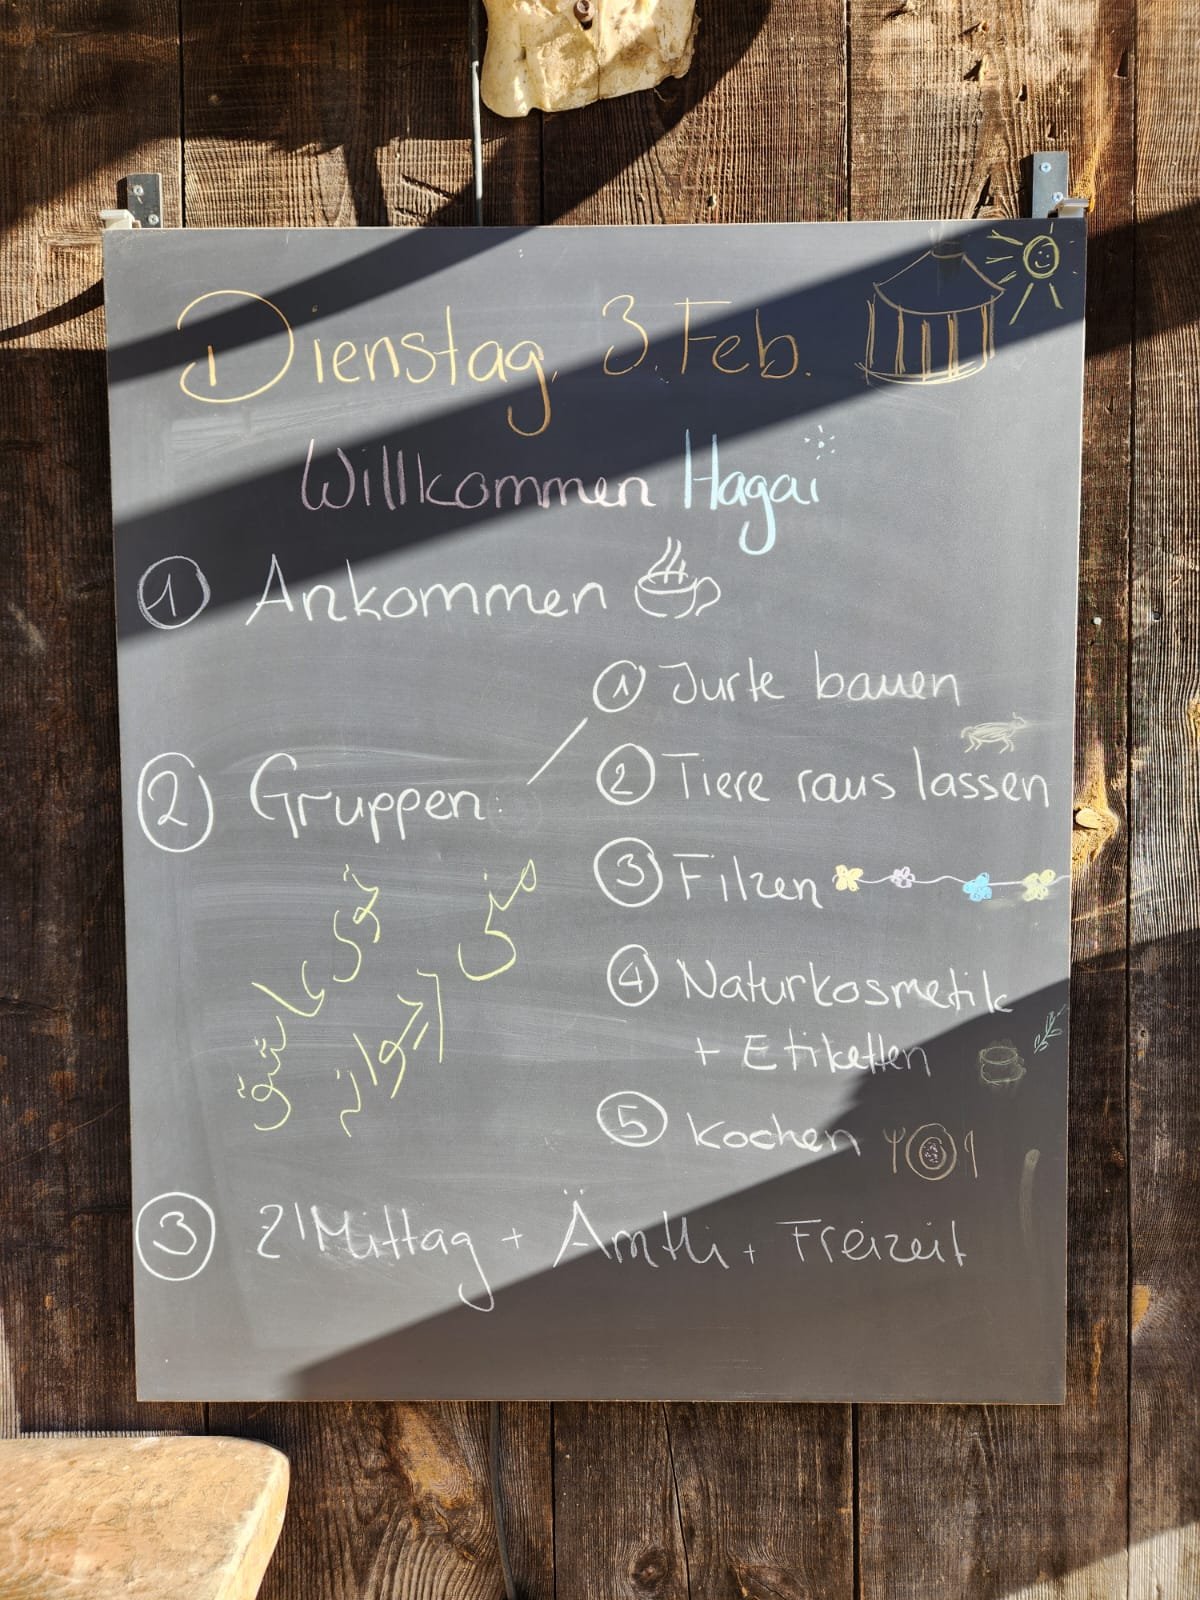 Dienstag, 3. Feb.
Willkommen Hagai
① Ankommen
② Gruppen:
① Jurte bauen
② Tiere raus lassen
③ Filzen
④ Naturkosmetik
+ Etiketten
⑤ Kochen
③ Z'Mittag + Ämtli + Freizeit